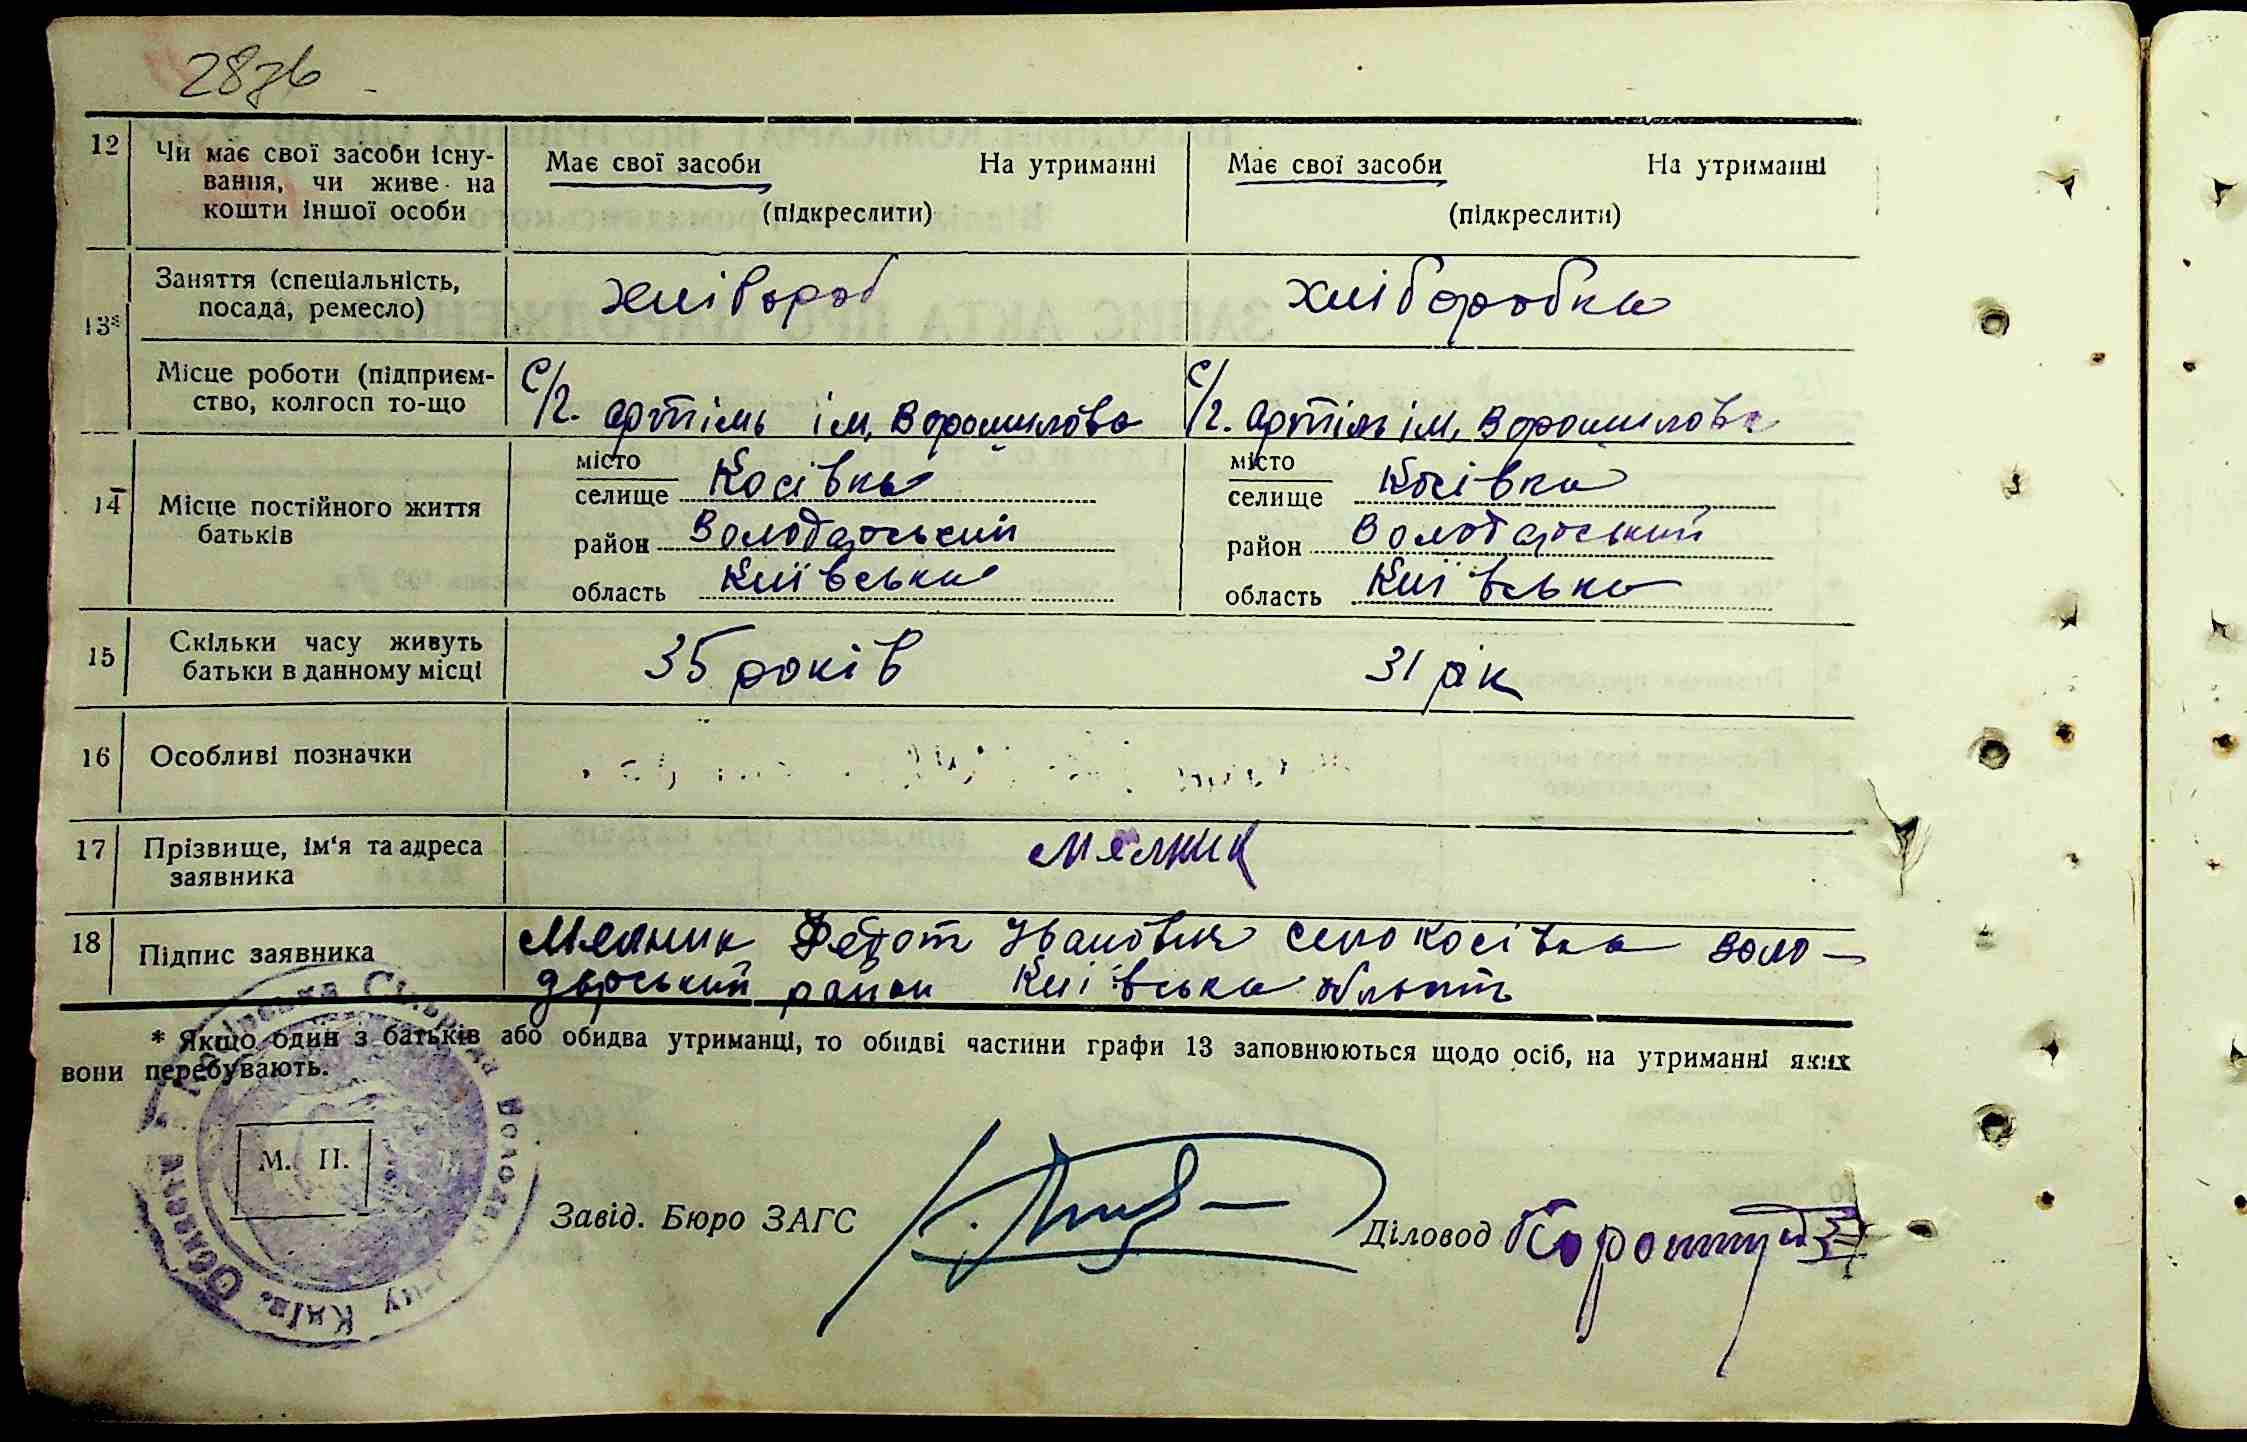 287б
12 Чи має свої засоби існу- Має свої засоби На утриманні Має свої засоби На утриманні
вання, чи живе на
кошти іншої особи (підкреслити) (підкреслити)
13* Заняття (спеціальність, хлібороб хліборобка
посада, ремесло)
Місце роботи (підприєм- с/г. артіль ім. Ворошилова с/г. артіль ім. Ворошилова
ство, колгосп то-що
14 Місце постійного життя батьків
місто місто
селище Косівка селище Косівка
район Володарський район Володарський
область Київська область Київська
15 Скільки часу живуть 35 років 31 рік
батьки в данному місці
16 Особливі позначки
17 Прізвище, ім'я та адреса мелник
заявника
18 Підпис заявника Мелник Федот Іванович село Косівка Воло-
дарський район Київська область
* Якщо один з батьків або обидва утриманці, то обидві частини графи 13 заповнюються щодо осіб, на утриманні яких
вони перебувають.
М. П.
Завід. Бюро ЗАГС Діловод